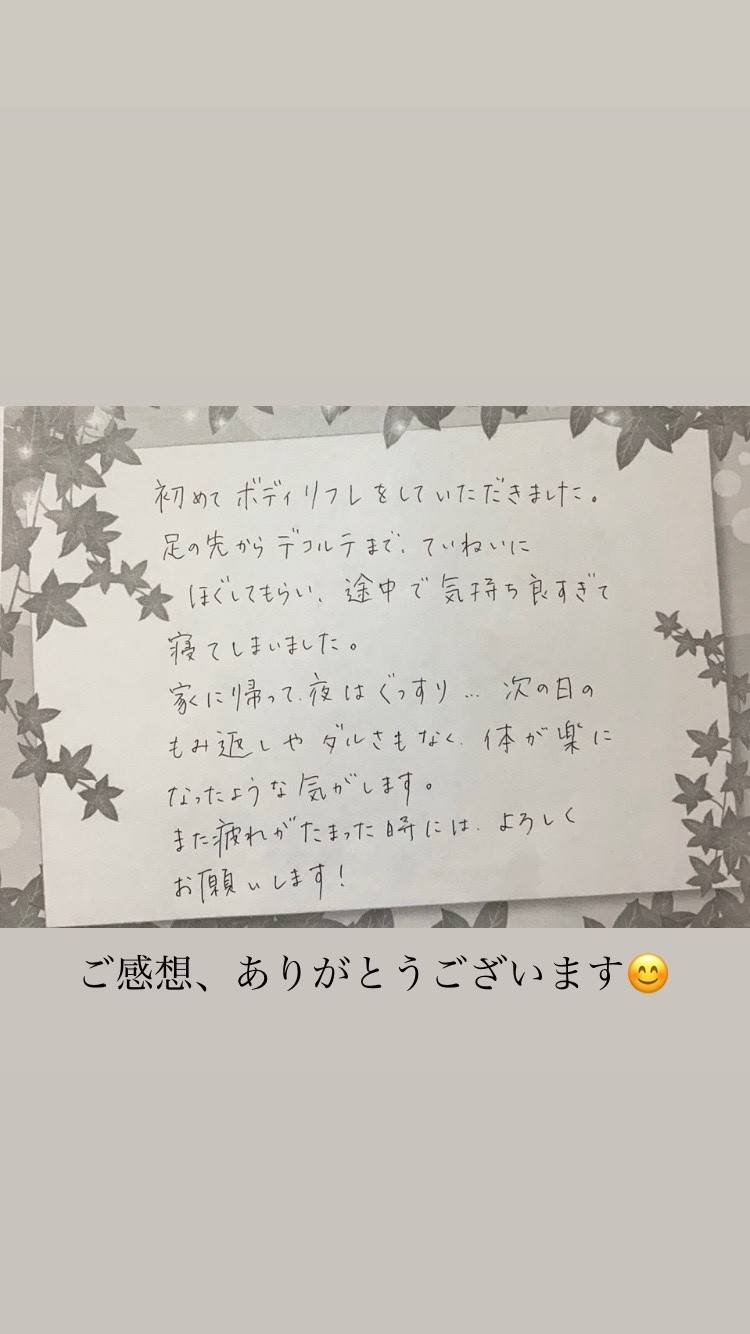 初めてボディリフレをしていただきました。
足の先からデコルテまで、ていねいに
ほぐしてもらい、途中で気持ち良すぎて
寝てしまいました。
家に帰って、夜はぐっすり… 次の日の
もみ返しやダルさもなく、体が楽に
なったような気がします。
また疲れがたまった時には、よろしく
お願いします!
ご感想、ありがとうございます😊